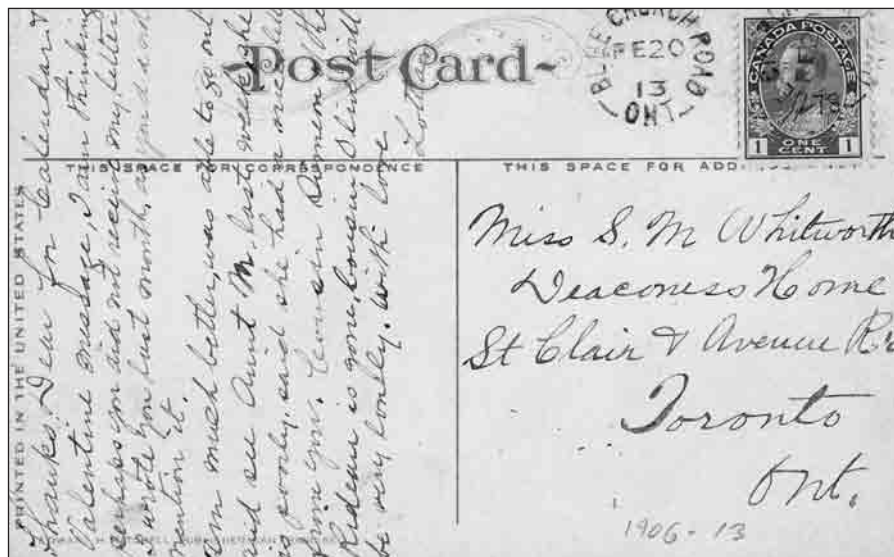 Post Card
BLUE CHURCH ROAD
FE 20
13
ONT.
CANADA POSTAGE
1 ONE CENT 1
THIS SPACE FOR CORRESPONDENCE
THIS SPACE FOR ADD
PRINTED IN THE UNITED STATES
Thanks Dear for Calendar &
Valentine message, I am thinking
perhaps you did not receive my letter
I wrote you last month, as you do not
mention it.
Am much better, was able to go out
and see Aunt M. last week she
is poorly. said she had a nice letter
from you. Cousin the
Rideau is gone, Cousin Olive will
be very lonely. with love
Lottie
Miss S. M Whitworth
Deaconess Home
St Clair & Avenue Rd
Toronto
Ont.
1906-13